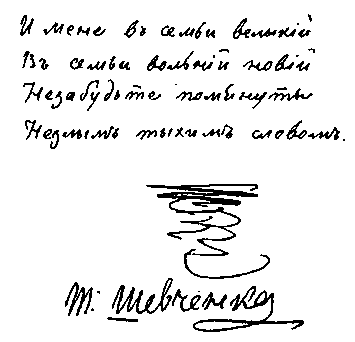 И мене въ семьи велыкій
Въ семьи вольній новій
Незабудьте помынуты
Незлымъ тыхимъ словомъ.
Т. Шевченко